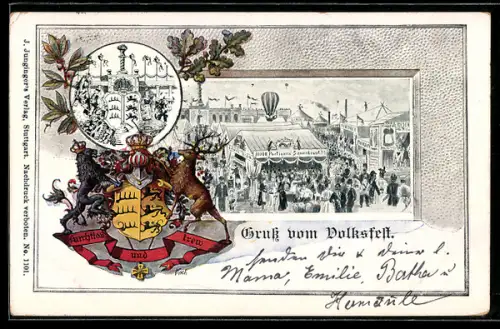 J. Jungingers Verlag, Stuttgart. Nachdruck verboten. No. 1101.
Furchtlos
und
trew
Gruß vom Volksfest.
senden Dir & Deine l.
Mama, Emilie, Bertha u